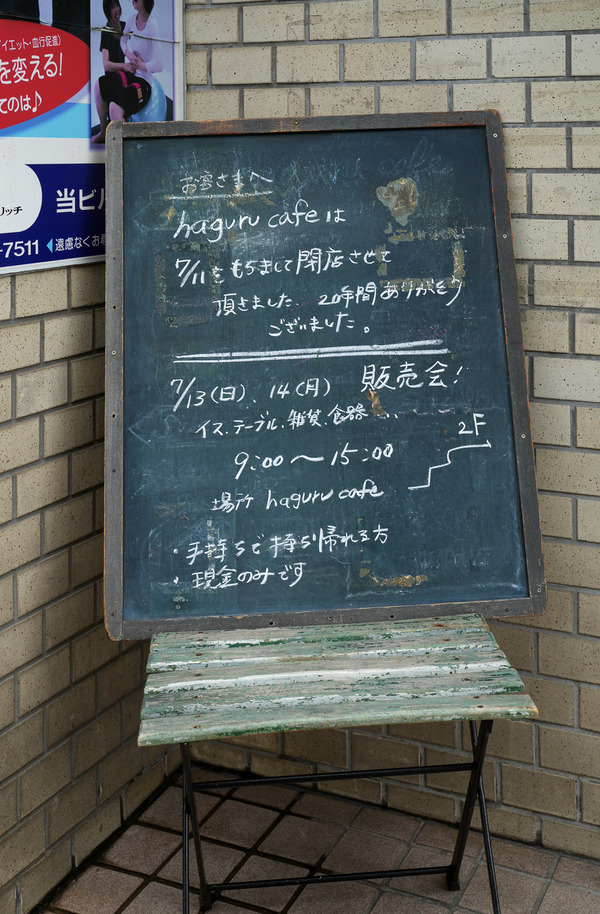 イエット・血行促進)
を変える!
てのは♪
リッチ
当ビル
-7511 ◀遠慮なくお
お客さまへ
haguru cafe は
7/11をもちまして閉店させて
頂きました。20年間ありがとう
ございました。
7/13(日)、14(月) 販売会!
イス、テーブル、雑貨、食器...
2F
9:00〜15:00
場所 haguru cafe
・手持ちで持ち帰れる方
・現金のみです